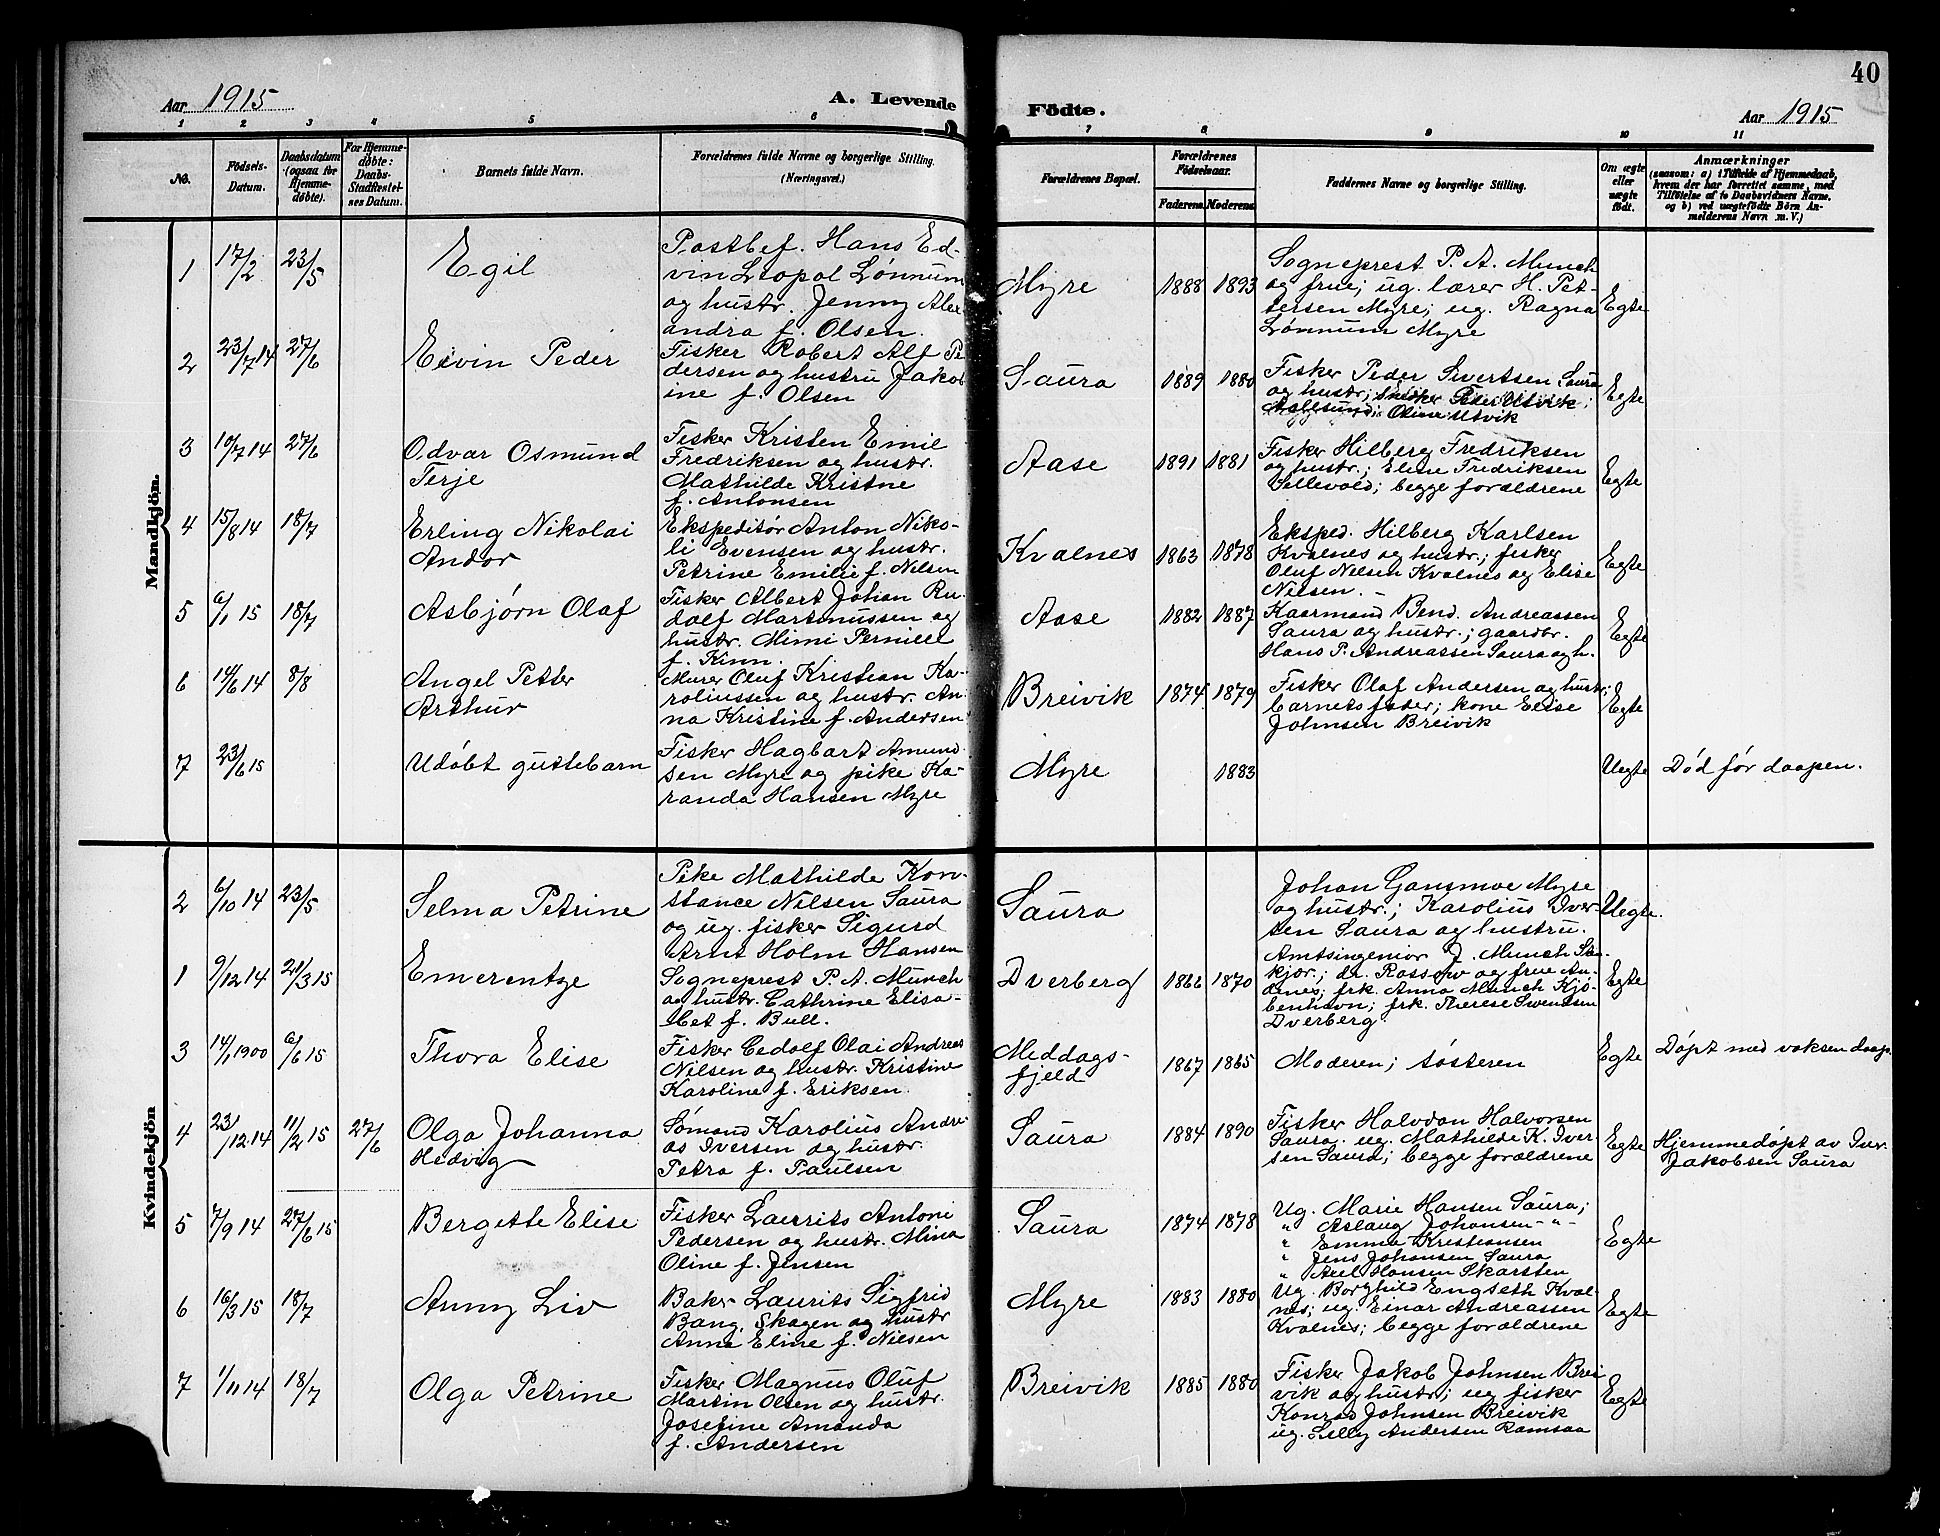 40
Aar 1915 A. Levende Födte. Aar 1915
1 2 3 4 5 6 7 8 9 10 11
No. Födsels-Datum. Daabsdatum (ogsaa for Hjemmedøbte). For Hjemmedøbte: Daabs-Stadfæstelses Datum. Barnets fulde Navn. Forældrenes fulde Navne og borgerlige Stilling. (Næringsvei.) Forældrenes Bopæl. Forældrenes Födselsaar. Faderens. Moderens. Faddernes Navne og borgerlige Stilling. Om ægte eller uægte födt. Anmærkninger (saasom: a) i Tilfælde af Hjemmedaab, hvem der har forrettet samme, med Tilföielse af to Daabsvidners Navne, og b) ved uægtefödte Börn Anmelderens Navn m. V.)
Mandkjön.
1 17/2 23/5 Egil
Postbef. Hans Ed-
vin Leopol Lønnum
og hustr. Jenny Alex
andra f. Olsen.
Myre 1888 1893
Sogneprest P. A. Munch
og frue; ug. lærer H. Pet-
tersen Myre; ug. Ragna
Lønnum Myre
Egte
2 23/7 14 27/6 Eivin Peder
Fisker Robert Alf Pe
dersen og hustru Jakob
ine f. Olsen
Saura 1889 1880
Fisker Peder Sivertsen Saura
og hustr; Peder Utvik;
Oline Utvik
Egte
3 10/7 14 27/6 Odvar Osmund
Terje
Fisker Kristen Emil
Fredriksen og hustr.
Mathilde Kristne
f. Antonsen
Aase 1891 1881
Fisker Hilberg Fredriksen
og hustr.; Eline Fredriksen
Vellevold; begge forældrene
Egte
4 15/8 14 18/7 Erling Nikolai
Andor
Ekspeditør Anton Niko-
li Evensen og hustr.
Petrine Emilie f. Nilsen
Kvalnes 1863 1878
Eksped. Hilberg Karlsen
Kvalnes og hustr.; fisker
Oluf Nilsen Kvalnes og Elise
Nilsen.
Egte
5 6/1 15 18/7 Asbjørn Olaf
Fisker Albert Johan Ru-
dolf Martinussen og
hustr. Mimi Pernille
f. Kinn.
Aase 1882 1887
Kaarmand Bend. Andreassen
Saura og hustr.; gaardbr.
Hans P. Andreassen Saura og h.
Egte
6 14/6 14 8/8 Angel Petter
Arthur
Murer Oluf Kristian Ka-
roliussen og hustr. An-
na Kristine f. Andersen
Breivik 1874 1879
Fisker Olaf Andersen og hustr;
barnets fader; kone Elise
Johnsen Breivik
Egte
7 23/6 15 Udøbt guttebarn
Fisker Hagbart Amund
sen Myre og pike Ka-
randa Hansen Myre
Myre 1883 Uegte Død før daapen.
Kvindekjön
2 6/10 14 23/5 Selma Petrine
Pike Mathilde Kon-
stance Nilsen Saura
og ug. fisker Sigurd
Arnt Holm Hansen
Saura
Johan Gansmoe Myre
og hustr.; Karolius Iver-
sen Saura og hustru.
Uegte.
1 9/12 14 21/3 15 Emerentze
Sogneprest P. A. Munch
og hustr. Cathrine Elisa-
bet f. Bull.
Dverberg 1866 1870
Amtsingeniør J. Munch Sten-
kjær.; dr. Rossow og frue An-
denes; frk. Anna Munch Kjø-
benhavn; frk. Therese Svendsen
Dverberg.
Egte
3 14/1 1900 6/6 15 Thora Elise
Fisker Cedolf Olai Andreas
Nilsen og hustr. Kristine
Karoline f. Eriksen.
Meddags-
fjeld
1867 1865 Moderen; søsteren Egte Døpt med voksen daap.
4 23/12 14 11/2 15 27/6 Olga Johanna
Hedvig
Sømand Karolius Andre
as Iversen og hustr.
Petra f. Paulsen
Saura 1884 1890
Fisker Halvdan Halvorsen
Saura. ug. Mathilde K. Iver-
sen Saura; begge forældrene
Egte
Hjemmedøpt av Iver
Jakobsen Saura
5 7/9 14 27/6 15 Bergette Elise
Fisker Laurits Antoni
Pedersen og hustr. Mina
Oline f. Jensen
Saura 1874 1878
Ug. Marie Hansen Saura;
" Aslaug Johansen - " -
" Emma Kristiansen
" Jens Johansen Saura
" Axel Hansen Skarsten
Egte
6 16/3 15 18/7 Anny Liv
Baker Laurits Sigfrid
Bang, Skagen og hustr
Anna Eline f. Nilsen
Myre 1883 1880
Ug. Borghild Engseth Kval-
nes; ug. Einar Andreassen
Kvalnes; begge forældrene
Egte
7 1/11 14 18/7 Olga Petrine
Fisker Magnus Oluf
Martin Olsen og hustr.
Josefine Amanda
f. Andersen
Breivik 1885 1880
Fisker Jakob Johnsen Brei
vik og hustr; ug fisker
Konrad Johnsen Breivik
ug. Lelly Andersen Ramsaa
Egte